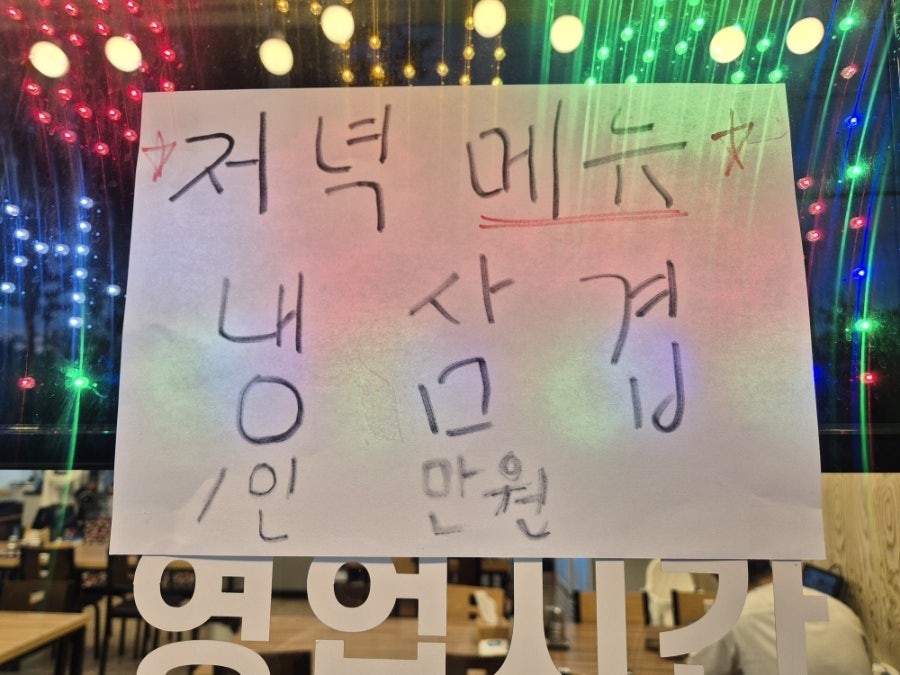 ☆저녁 메뉴☆
냉 삼 겹
1인 만원
영업시간